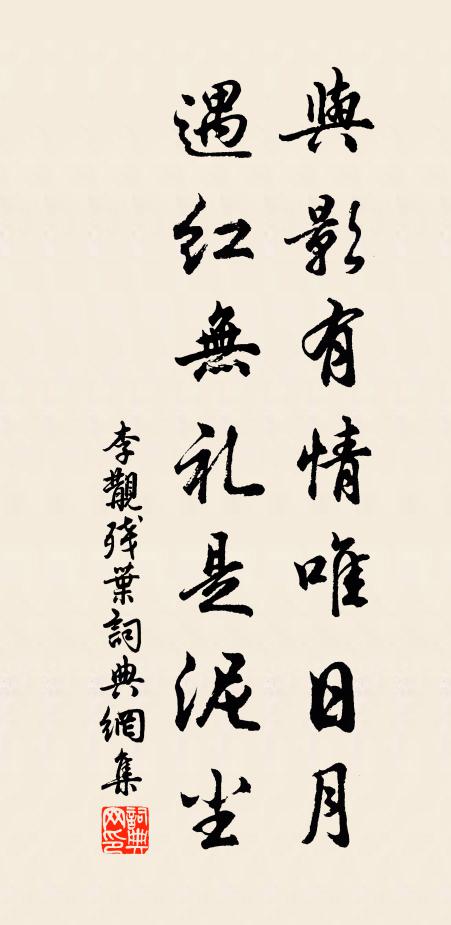 與影有情唯日月
遇紅無礼是泥尘
李覯残葉詞典網集
詞典网印